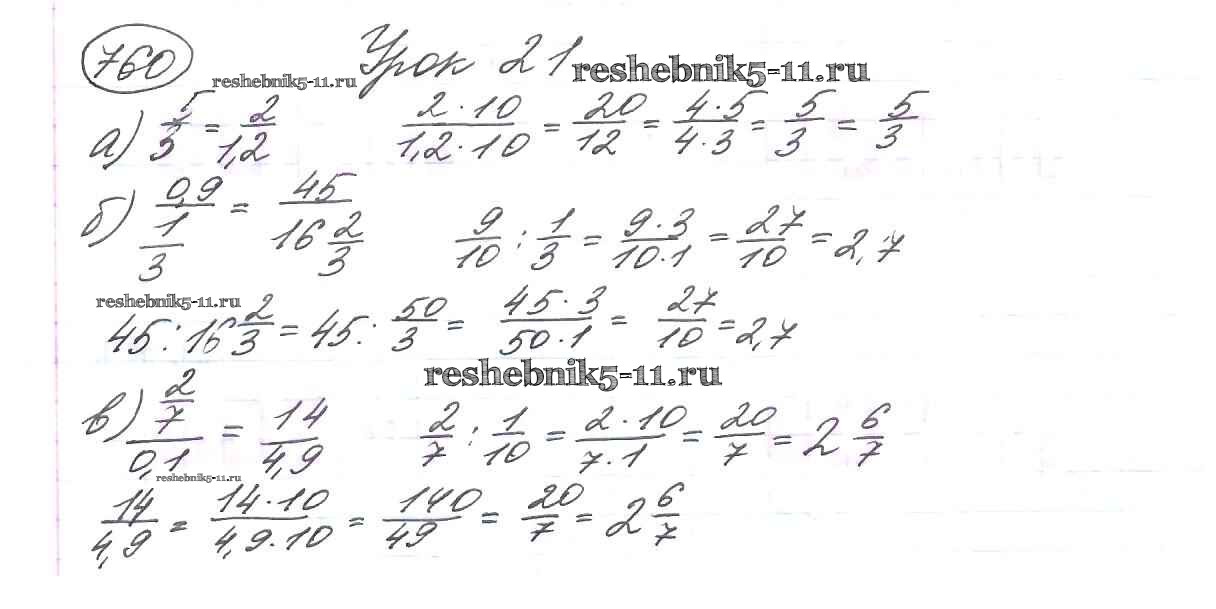 760 Урок 21
reshebnik5-11.ru reshebnik5-11.ru
а) 5/3 = 2/1,2 (2·10)/(1,2·10) = 20/12 = (4·5)/(4·3) = 5/3 = 5/3
б) 0,9/(1/3) = 45/(16 2/3) 9/10 : 1/3 = (9·3)/(10·1) = 27/10 = 2,7
reshebnik5-11.ru
45 : 16 2/3 = 45 : 50/3 = (45·3)/(50·1) = 27/10 = 2,7
reshebnik5-11.ru
в) (2/7)/0,1 = 14/4,9 2/7 : 1/10 = (2·10)/(7·1) = 20/7 = 2 6/7
reshebnik5-11.ru
14/4,9 = (14·10)/(4,9·10) = 140/49 = 20/7 = 2 6/7